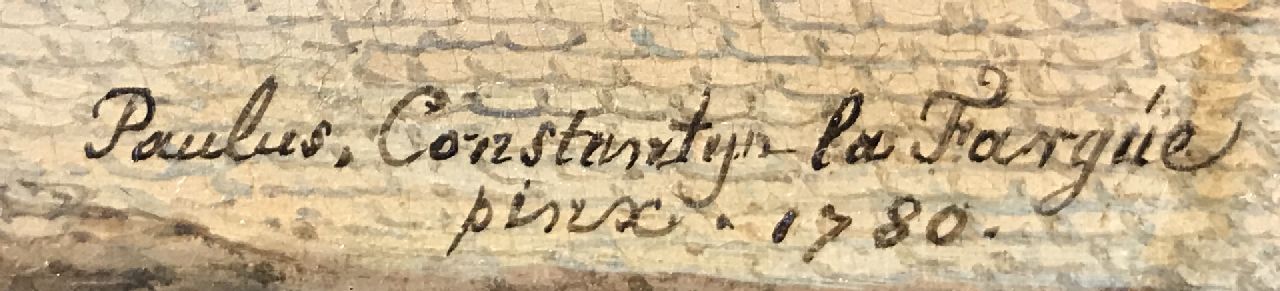 Paulus, Constantyn la Fargúe
pinx. 1780.